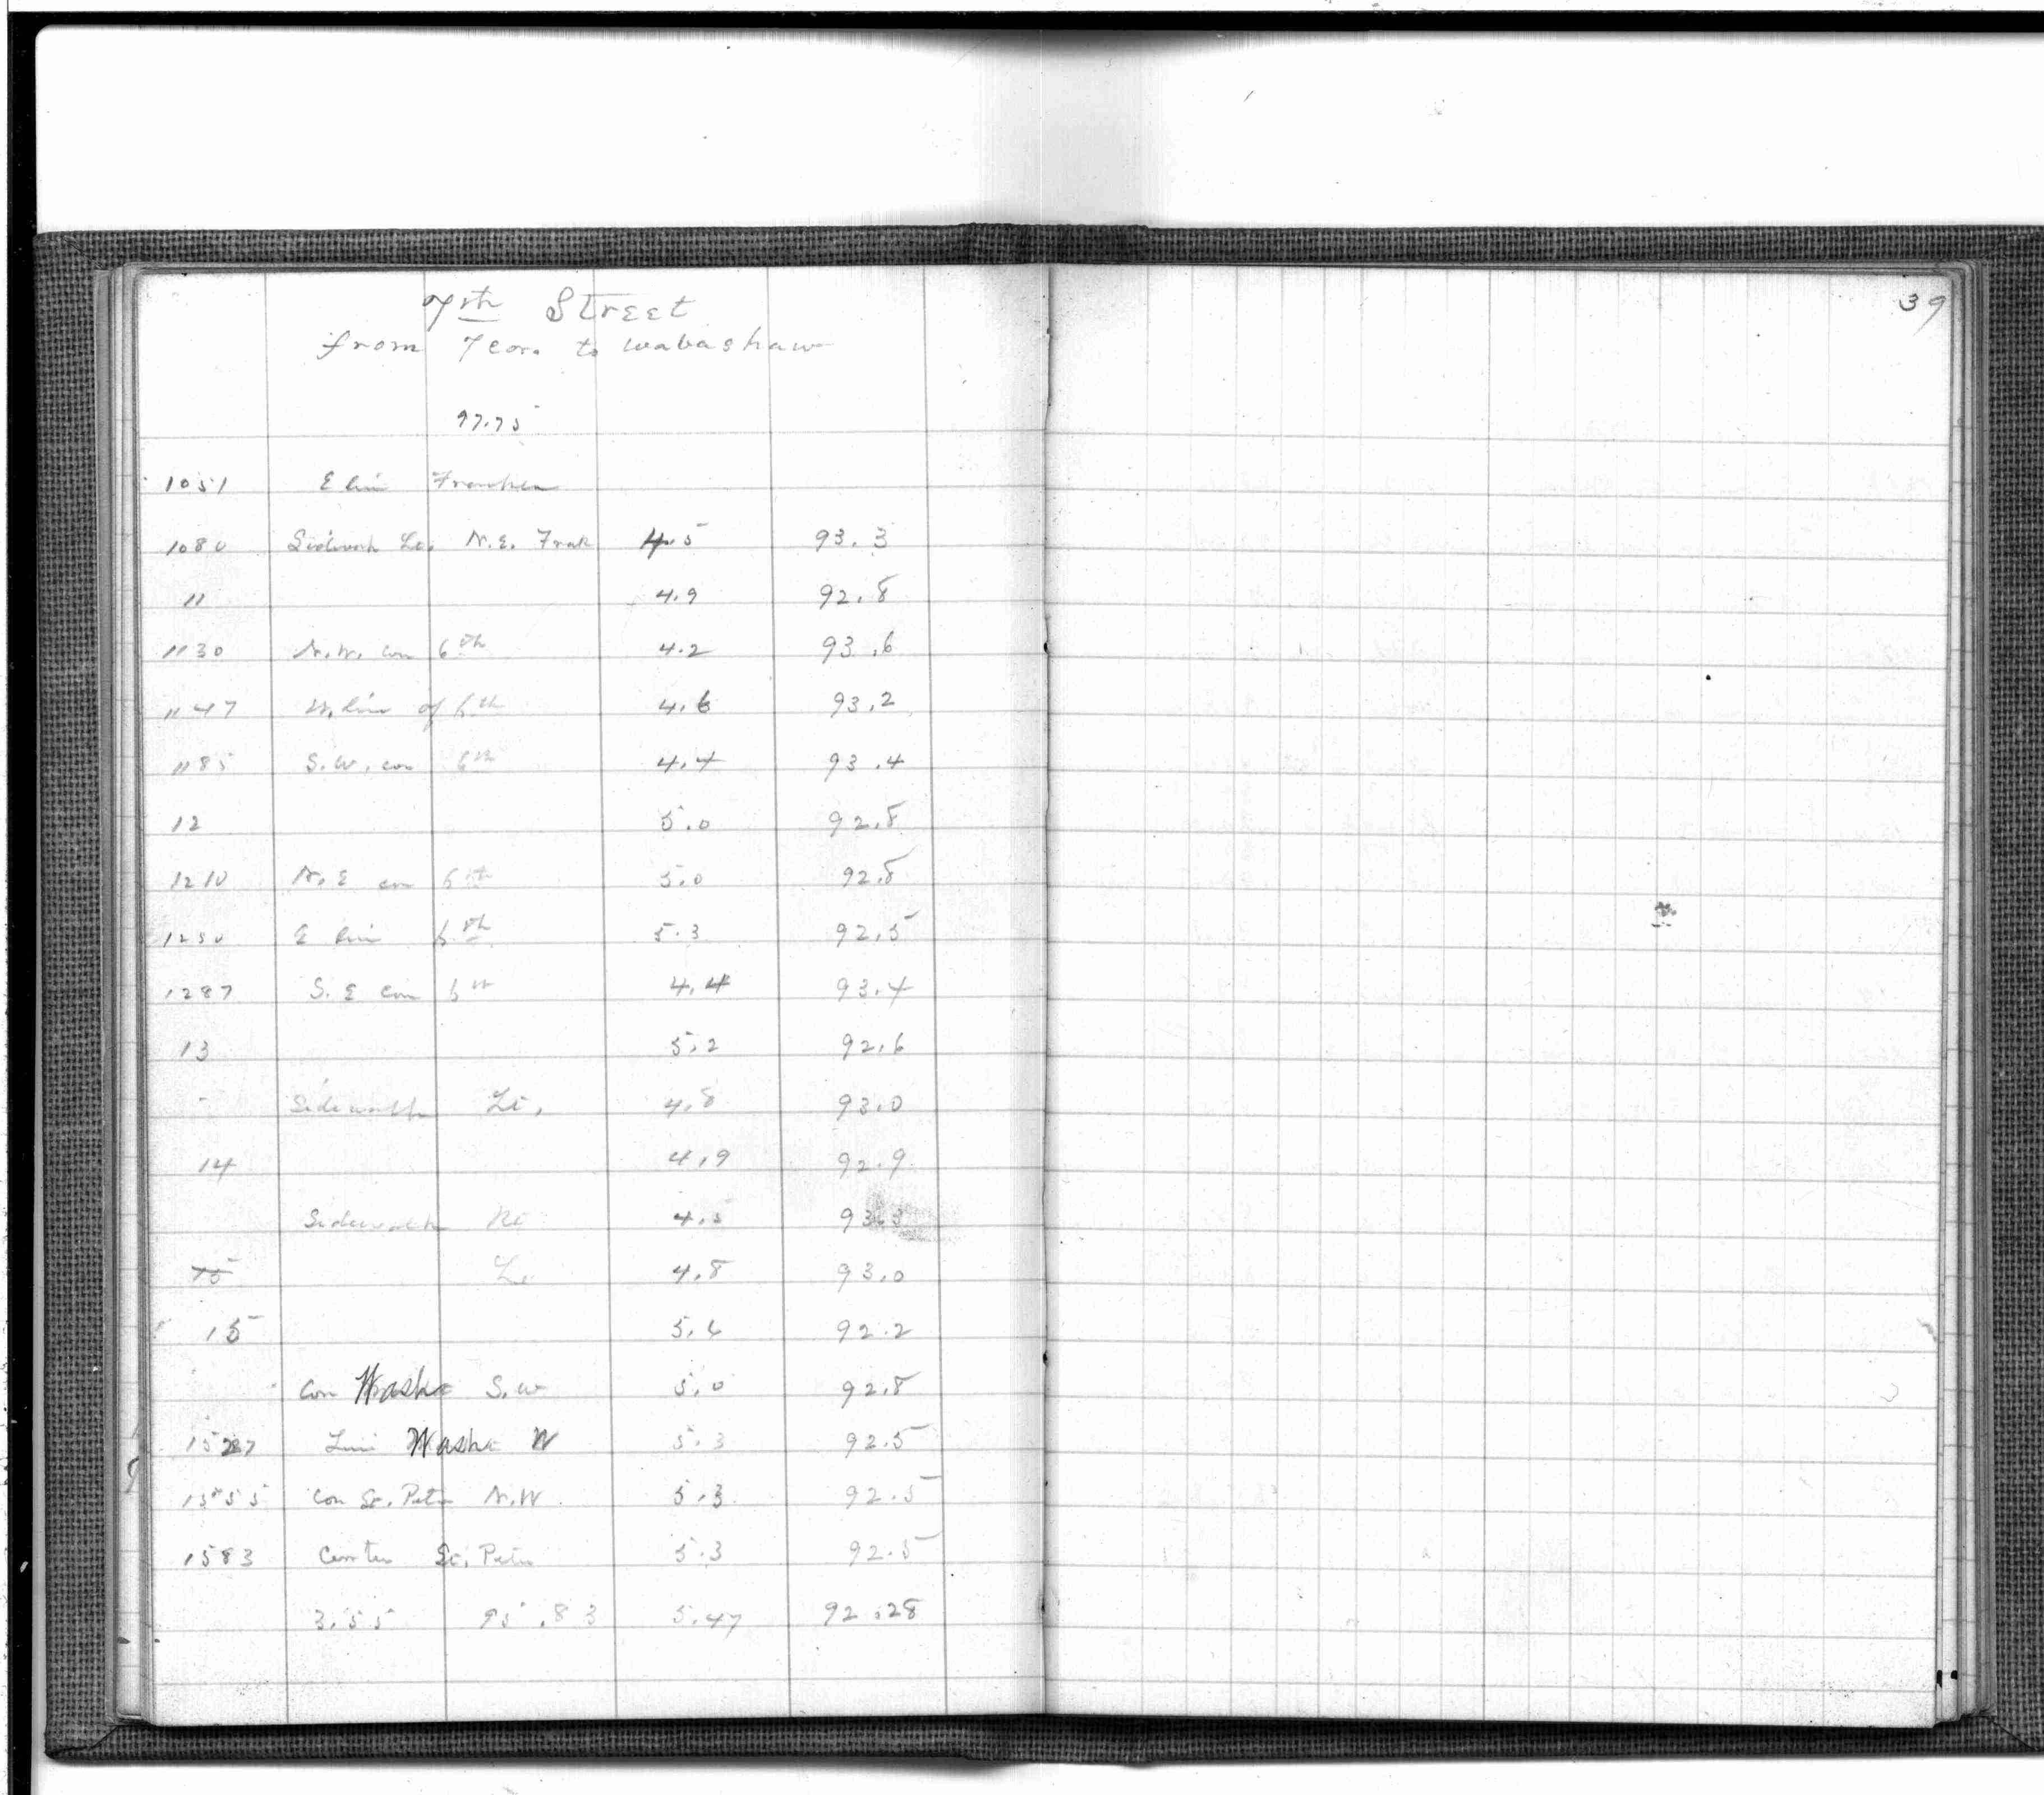 7th Street
from 7 cor. to Wabashaw
97.75
1051 E line Franklin
1080 Sidewalk Lt. N.E. Frank 4.5 93.3
11 4.9 92.8
1130 N.W. cor 6th 4.2 93.6
1147 W. line of 6th 4.6 93.2
1185 S.W. cor 6th 4.4 93.4
12 5.0 92.8
1210 N.E cor 6th 5.0 92.8
1250 E line 6th 5.3 92.5
1287 S.E cor 6th 4.4 93.4
13 5.2 92.6
Sidewalk Lt. 4.8 93.0
14 4.9 92.9
Sidewalk Rt 4.5 93.3
15 Lt 4.8 93.0
15 5.6 92.2
Cor Washe S.W 5.0 92.8
1527 Line Washe W 5.3 92.5
1555 Cor St. Peter N.W 5.3 92.5
1583 Center St. Peter 5.3 92.5
3.55 95.83 5.47 92.28
39